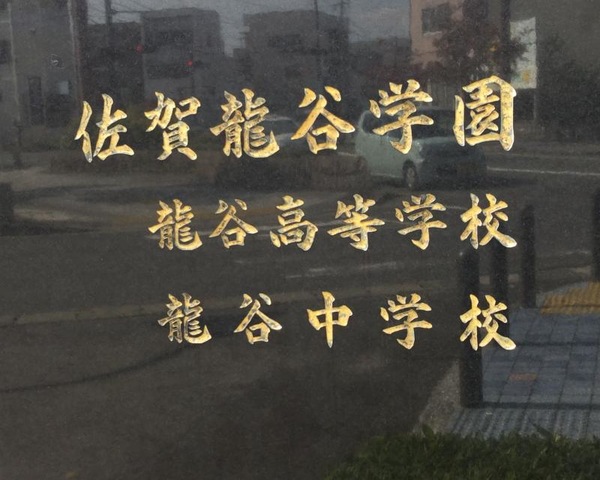 佐賀龍谷学園
龍谷高等学校
龍谷中学校